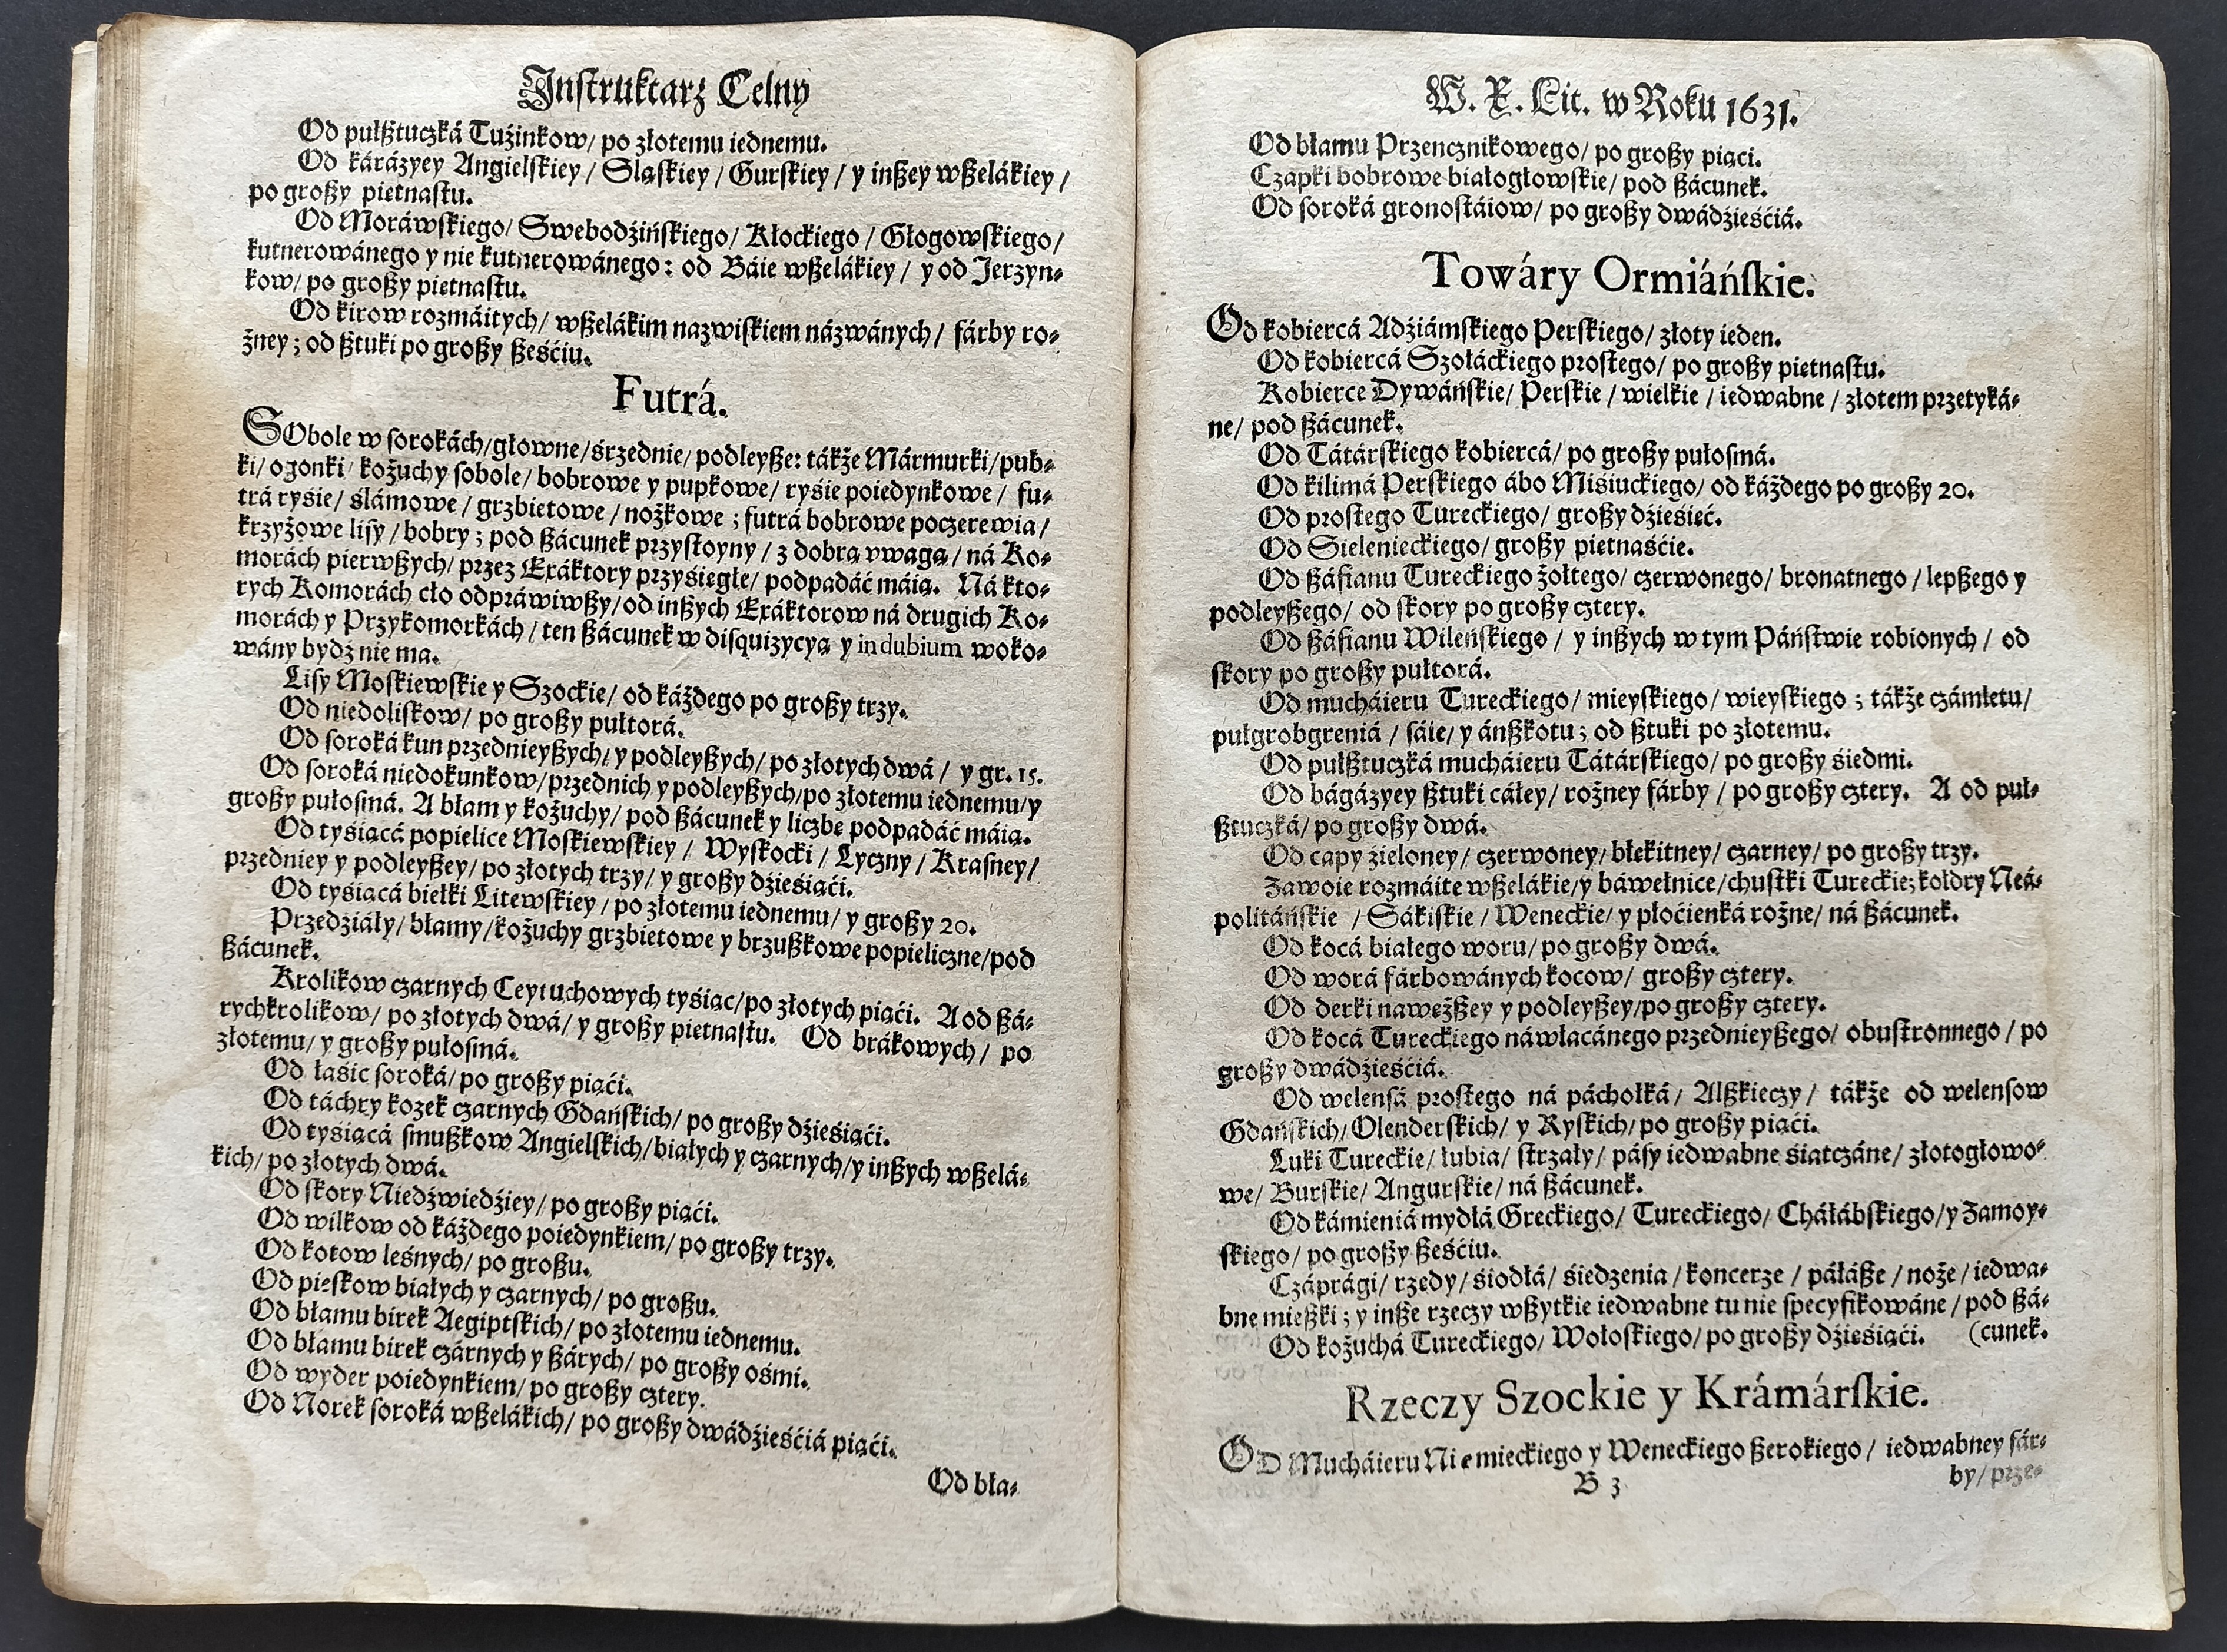 Instruktarz Celny
Od pułßtuczká Tuźinkow/ po złotemu iednemu.
Od kárázyey Angielskiey / Sląskiey / Gurskiey / y inßey wßelákiey /
po großy pietnastu.
Od Moráwskiego/ Swebodźińskiego/ Kłockiego / Głogowskiego/
kutnerowánego y nie kutnerowánego: od Báie wßelákiey / y od Jerzyn-
kow/ po großy pietnastu.
Od kirow rozmáitych/ wßelákim nazwiskiem názwánych/ fárby ro-
żney; od ßtuki po großy ßeśćiu.
Futrá.
SObole w sorokách/głowne/śrzednie/ podleyße: tákże Mármurki/pub-
ki/ ogonki/ kożuchy sobole/ bobrowe y pupkowe/ ryśie poiedynkowe / fu-
trá rysie/ ślámowe / grzbietowe / nożkowe ; futrá bobrowe poczerewia /
krzyżowe lisy / bobry ; pod ßácunek przystoyny / z dobrą vwagą / ná Ko-
morách pierwßych/ przez Exáktory przyśiegłe/ podpadáć máią. Ná kto-
rych Komorách cło odpráwiwßy/od inßych Exáktorow ná drugich Ko-
morách y Przykomorkách / ten ßácunek w disquizycyą y in dubium woko-
wány bydź nie ma.
Lisy Moskiewskie y Szockie/ od káżdego po großy trzy.
Od niedoliskow/ po großy pułtorá.
Od soroká kun przednieyßych/ y podleyßych/ po złotych dwá / y gr. 15.
Od soroká niedokunkow/przednich y podleyßych/po złotemu iednemu/y
großy pułosmá. A błam y kożuchy/ pod ßácunek y liczbe podpadáć máią.
Od tysiącá popielice Moskiewskiey / Wyskocki / Lyczny / Krasney/
przedniey y podleyßey/ po złotych trzy/ y großy dźieśiąći.
Od tyśiącá biełki Litewskiey / po złotemu iednemu/ y großy 20.
Przedźiáły/ błamy/kożuchy grzbietowe y brzußkowe popieliczne/pod
ßácunek.
Krolikow czarnych Ceytuchowych tyśiąc/po złotych piąći. A od ßá-
rychkrolikow/ po złotych dwá/ y großy pietnastu. Od brákowych/ po
złotemu/ y großy pułosmá.
Od łasic soroká/ po großy piąći.
Od táchry kozek czarnych Gdańskich/ po großy dźieśiąći.
Od tysiącá smußkow Angielskich/białych y czarnych/y inßych wßelá-
kich/ po złotych dwá.
Od skory Niedźwiedźiey/ po großy piąći.
Od wilkow od káżdego poiedynkiem/ po großy trzy.
Od kotow leśnych/ po großu.
Od pieskow białych y czarnych/ po großu.
Od błamu birek Aegiptskich/ po złotemu iednemu.
Od błamu birek czárnych y ßárych/ po großy ośmi.
Od wyder poiedynkiem/ po großy cztery.
Od Norek soroká wßelákich/ po großy dwádźieśćiá piąći.
Od bła-
W. X. Lit. w Roku 1631.
Od błamu Przencznikowego/ po großy piąci.
Czapki bobrowe białogłowskie/ pod ßácunek.
Od soroká gronostáiow/ po großy dwádźieśćiá.
Towáry Ormiáńskie.
Od kobiercá Adżiámskiego Perskiego/ złoty ieden.
Od kobiercá Szołáckiego prostego/ po großy pietnastu.
Kobierce Dywáńskie/ Perskie / wielkie / iedwabne / złotem przetyká-
ne/ pod ßácunek.
Od Tátárskiego kobiercá/ po großy pułosmá.
Od kilimá Perskiego ábo Misiuckiego/ od káżdego po großy 20.
Od prostego Tureckiego/ großy dźieśieć.
Od Sielenieckiego/ großy pietnaśćie.
Od ßáfianu Tureckiego żołtego/ czerwonego/ bronatnego / lepßego y
podleyßego/ od skory po großy cztery.
Od ßáfianu Wileńskiego / y inßych w tym Páństwie robionych / od
skory po großy pułtorá.
Od mucháieru Tureckiego/ mieyskiego/ wieyskiego ; tákże czámletu/
pułgrobgreniá / sáie/ y ánßkotu; od ßtuki po złotemu.
Od pułßtuczká mucháieru Tátárskiego/ po großy śiedmi.
Od bágázyey ßtuki cáłey/ rożney fárby / po großy cztery. A od puł-
ßtuczká/ po großy dwá.
Od capy źieloney/ czerwoney/ błekitney/ czarney/ po großy trzy.
Zawoie rozmáite wßelákie/y báwełnice/chustki Tureckie; kołdry Neá-
politáńskie / Sákiskie / Weneckie/ y płoćienká rożne/ ná ßácunek.
Od kocá białego woru/ po großy dwá.
Od worá fárbowánych kocow/ großy cztery.
Od derki nawęźßey y podleyßey/po großy cztery.
Od kocá Tureckiego náwłacánego przednieyßego/ obustronnego / po
großy dwádźieśćiá.
Od welensá prostego ná páchołká/ Alßkieczy/ tákże od welensow
Gdańskich/ Olenderskich/ y Ryskich/ po großy piąći.
Łuki Tureckie/ łubia/ strzały/ pásy iedwabne śiatczáne/ złotogłowo-
we/ Burskie/ Angurskie/ ná ßácunek.
Od kámieniá mydłá Greckiego/ Tureckiego/ Cháłábskiego/y Zamoy-
skiego/ po großy ßeśćiu.
Czáprági/ rzedy/ śiodłá/ śiedzenia / koncerze / páłáße / noże / iedwa-
bne mießki ; y inße rzeczy wßytkie iedwabne tu nie specyfikowáne / pod ßá-
Od kożuchá Tureckiego/ Wołoskiego/ po großy dźieśiąći. (cunek.
Rzeczy Szockie y Krámárskie.
OD Mucháieru Niemieckiego y Weneckiego ßerokiego / iedwabney fár-
B 3 by/ prze-